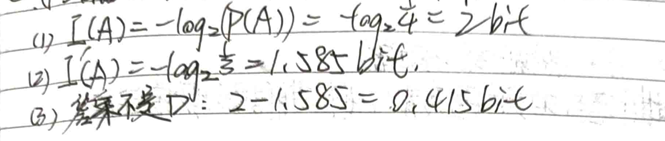 (1) I(A)=-log₂(P(A))=-log₂¼=2bit
(2) I(A)=-log₂⅓=1.585bit.
(3) 答案不是D:2-1.585=0.415bit